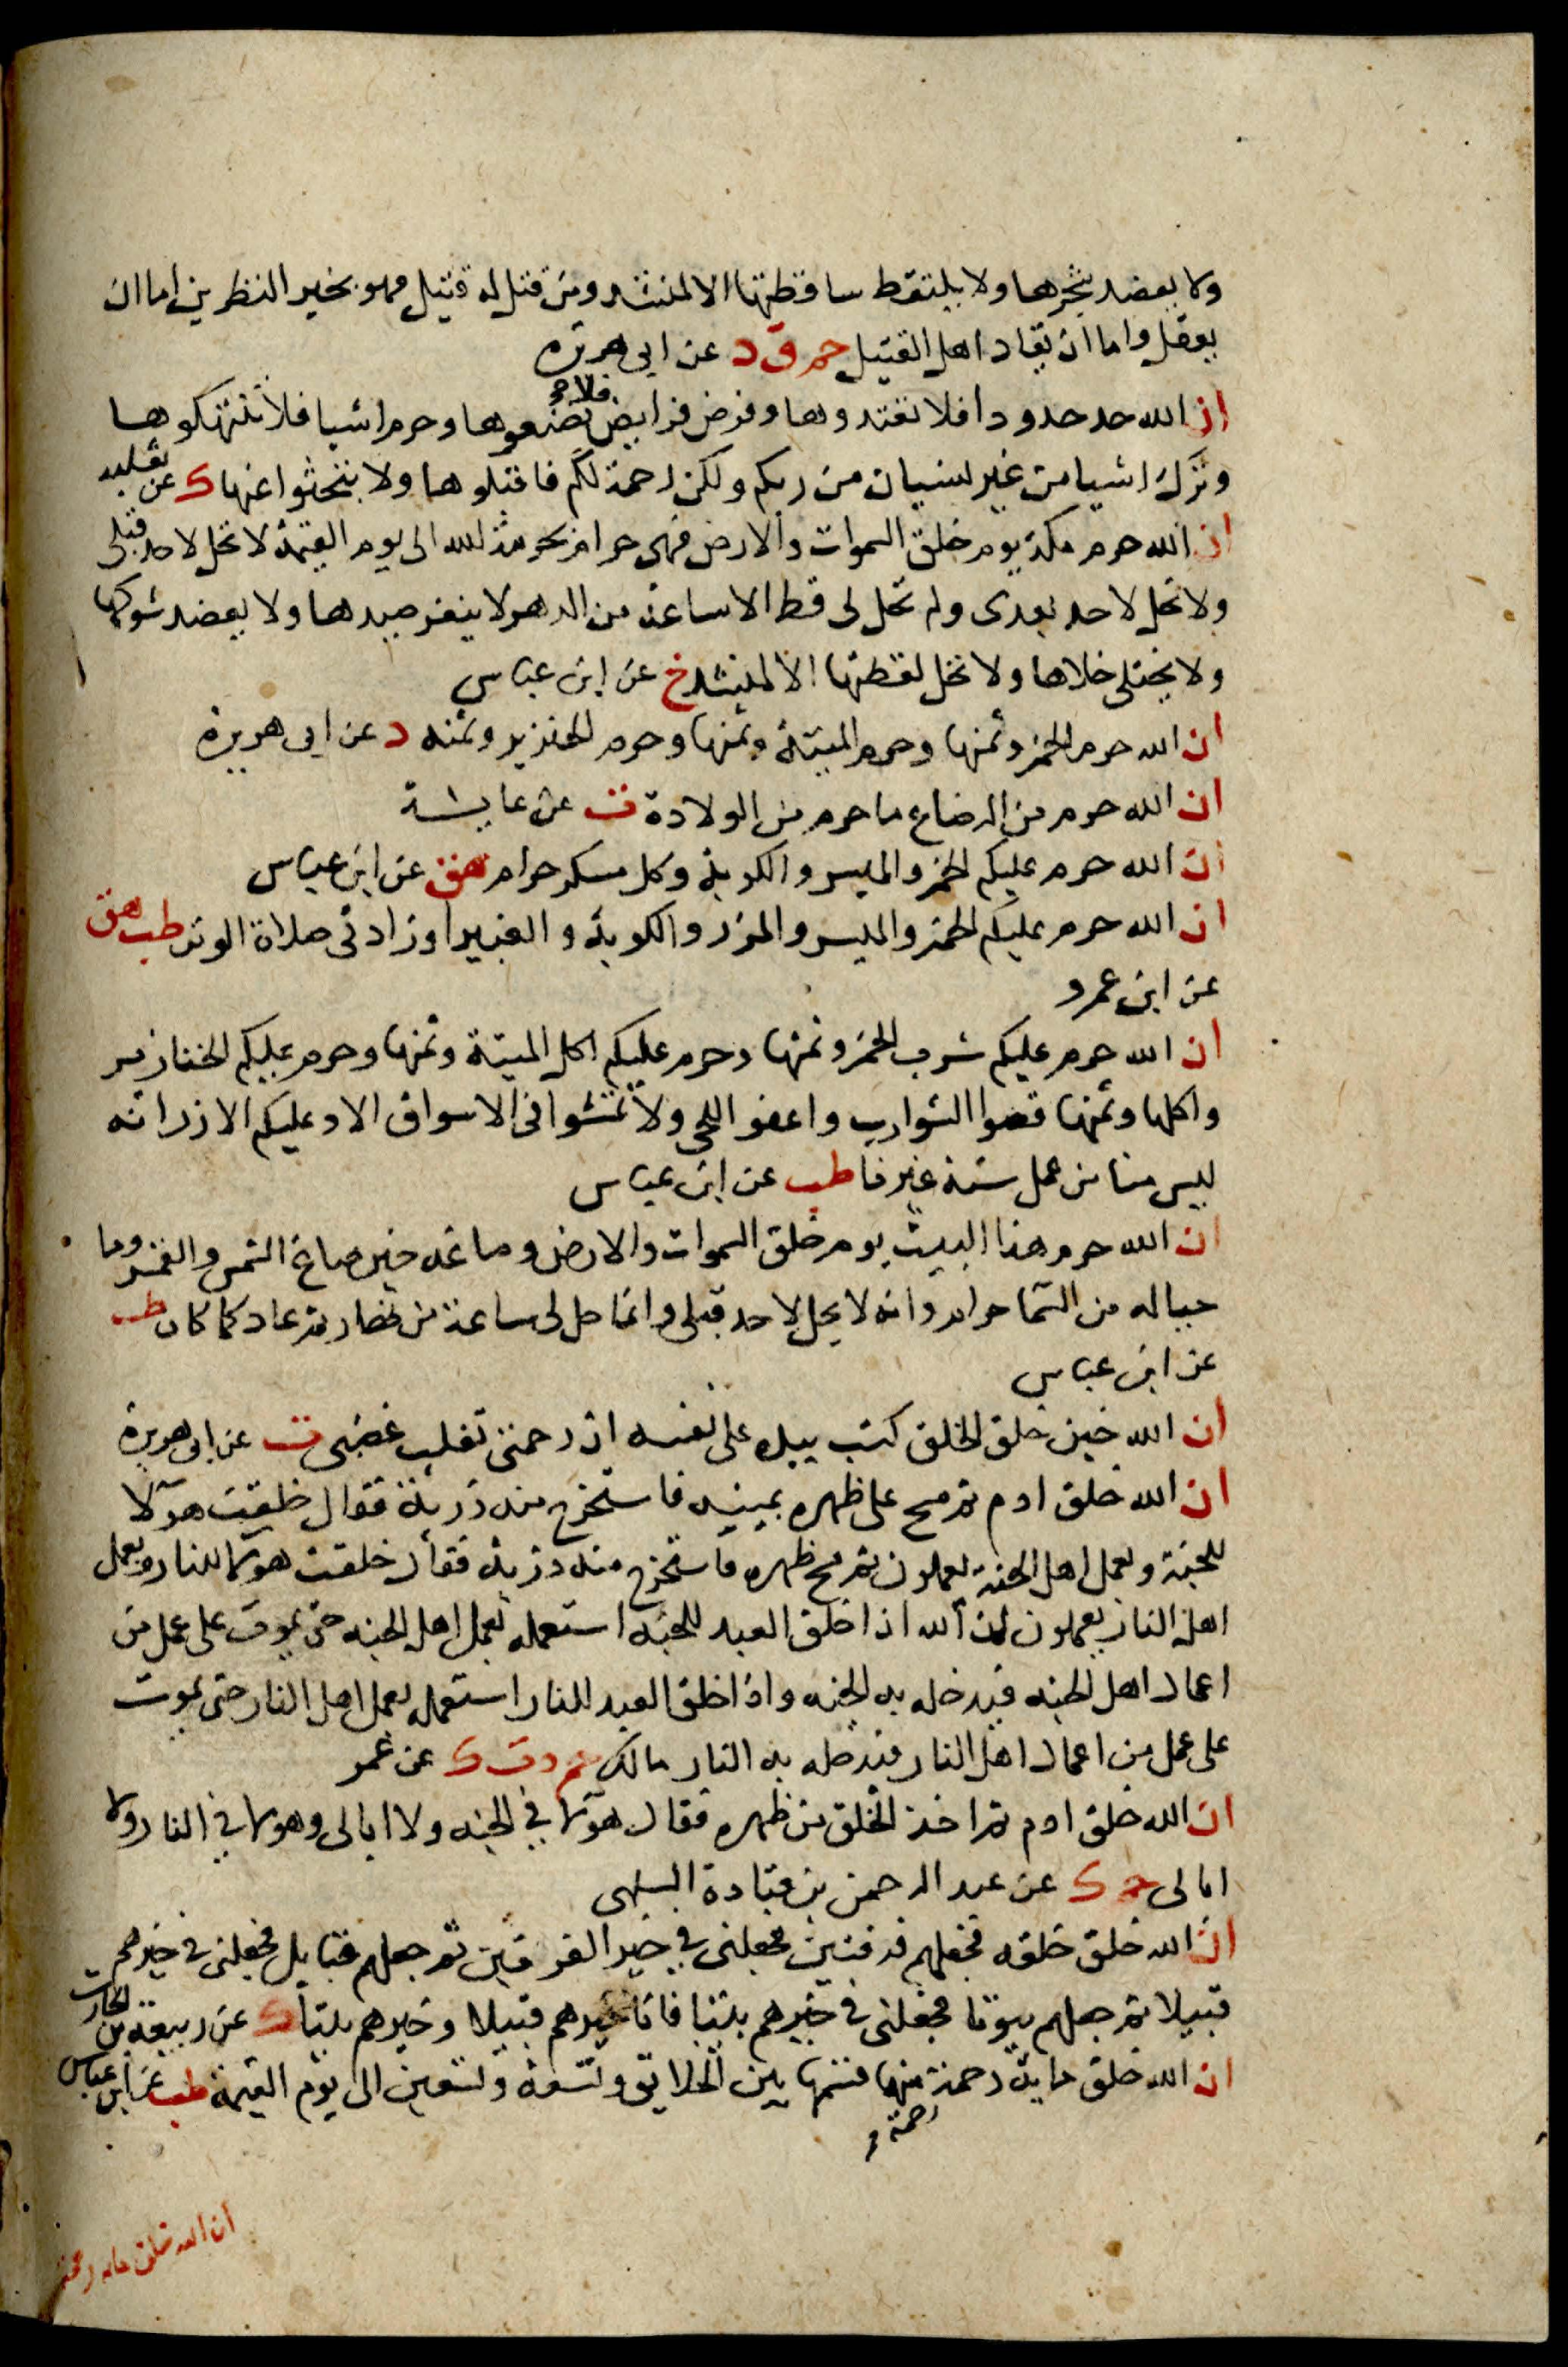 ولا يعضد شجرها ولا يلتقط ساقطتها الا لمنشد ومن قتل له قتيل فهو بخير النظرين اما ان
يعقل واما ان يقاد اهل القتيل حم ق د عن ابى هريرة
ان الله حد حدودا فلا تعتدوها وفرض فرايض فلا تضيعوها وحرم اشيا فلا تنتهكوها
وترك اشيا من غير نسيان من ربكم ولكن رحمة لكم فاقبلوها ولا تبحثوا عنها ك عن ثعلبه
ان الله حرم مكة يوم خلق السموات والارض فهى حرام بحرمة الله الى يوم القيمة لا تحل لاحد قبلى
ولا تحل لاحد بعدى ولم تحل لى قط الا ساعة من الدهر لا ينفر صيدها ولا يعضد شوكها
ولا يختلى خلاها ولا تحل لقطتها الا لمنشد خ عن ابن عباس
ان الله حرم الخمر وثمنها وحرم الميتة وثمنها وحرم الخنزير وثمنه د عن ابى هريرة
ان الله حرم من الرضاع ما حرم من الولادة ت عن عايشة
ان الله حرم عليكم الخمر والميسر والكوبة وكل مسكر حرام هق عن ابن عباس
ان الله حرم عليكم الخمر والميسر والمزر والكوبة والغبيرا وزادنى صلاة الوتر طب هق
عن ابن عمرو
ان الله حرم عليكم شرب الخمر وثمنها وحرم عليكم اكل الميتة وثمنها وحرم عليكم الخنازير
واكلها وثمنها قصوا الشوارب واعفوا اللحى ولا تمشوا فى الاسواق الا وعليكم الازر انه
ليس منا من عمل سنة غيرنا طب عن ابن عباس
ان الله حرم هذا البيت يوم خلق السموات والارض وصاغه حين صاغ الشمس والقمر وما
حياله من السما حرام وانه لا يحل لاحد قبلى وانما حل لى ساعة من نهار ثم عاد كما كان طب
عن ابن عباس
ان الله حين خلق الخلق كتب بيده على نفسه ان رحمتى تغلب غضبى ت عن ابى هريرة
ان الله خلق ادم ثم مسح على ظهره بيمينه فاستخرج منه ذرية فقال خلقت هولا
للجنة وبعمل اهل الجنة يعملون ثم مسح ظهره فاستخرج منه ذرية فقال خلقت هولا للنار وبعمل
اهل النار يعملون ان الله اذا خلق العبد للجنه استعمله بعمل اهل الجنه حتى يموت على عمل من
اعمال اهل الجنه فيدخله به الجنه واذا خلق العبد للنار استعمله بعمل اهل النار حتى يموت
على عمل من اعمال اهل النار فيدخله به النار مالك حم د ت ك عن عمر
ان الله خلق ادم ثم اخذ الخلق من ظهره فقال هولا في الجنه ولا ابالى وهولا في النار ولا
ابالى حم ك عن عبد الرحمن بن قتادة السلمى
ان الله خلق خلقه فجعلهم فرقتين فجعلنى في خير الفرقتين ثم جعلهم قبايل فجعلنى في خيرهم
قبيلا ثم جعلهم بيوتا فجعلنى في خيرهم بيتا فانا خيرهم قبيلا وخيرهم بيتا ك عن ربيعة بن الحارث
ان الله خلق ماية رحمة منها قسمها بين الخلايق وتسعة وتسعين الى يوم القيمة طب عن ابن عباس
رحمة
ان الله خلق مايه رحمة